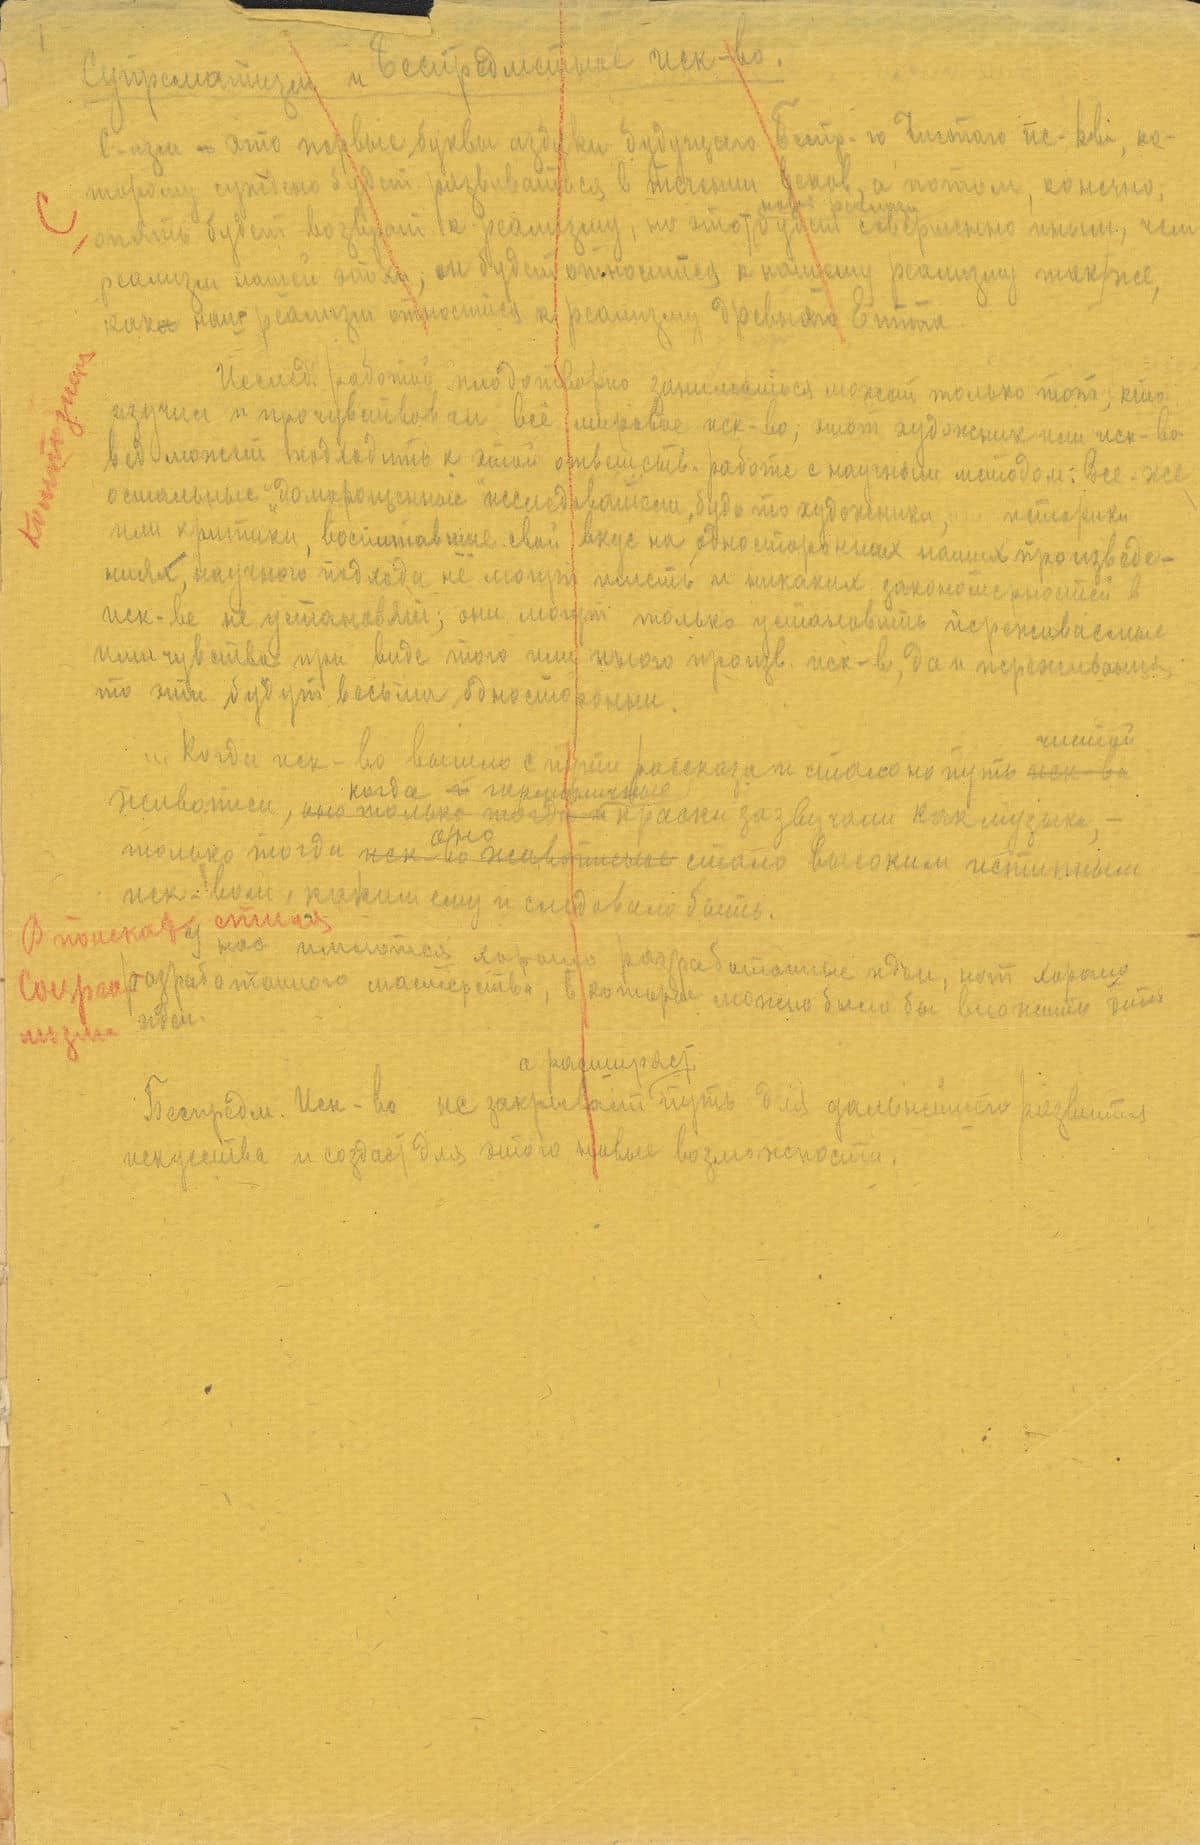 Супрематизм и Беспредметное иск-во.
С-изм – это первые буквы азбуки будущего Беспр-го Чистого ис-кв, ко-
торому суждено будет развиваться в течении веков, а потом, конечно,
С
новый реализм
опять будет возврат к реализму, но этот будет совершенно иным, чем
реализм нашей эпохи; он будет относится к нашему реализму также,
как наш реализм относится к реализму древнего Египта.
Исслед. работой плодотворно заниматься может только тот, кто
изучил и прочувствовал всё мировое иск-во; этот художник или иск-во
вед может подходить к этой ответств. работе с научным методом: Все-же
остальные "доморощенные" исследователи, будь то художники, историки
или критики, воспитавшие свой вкус на односторонних наших произведе-
ниях, научного подхода не могут иметь и никаких закономерностей в
иск-ве не установят; они могут только установить переживаемые
ими чувства при виде того или иного произв. иск-в, да и переживания
то эти будут весьма односторонни.
чистой
Когда иск-во вышло с пути рассказа и стало на путь иск-ва
когда и гармоничные
живописи, оно только тогда и краски зазвучали как музыка, –
оно
только тогда иск-во живописное стало высоким истинным
иск-вом, каким ему и следовало быть.
В поисках стиля
У нас имеются хорошо разработанные идеи, нет хорошо
Соцреа
разработанного мастерства, в которые можно было бы вложить эти
лизм
идеи.
а расширяет
Беспредм. Иск-во не закрывает путь для дальнейшего развития
искусства и создаст для этого новые возможности.